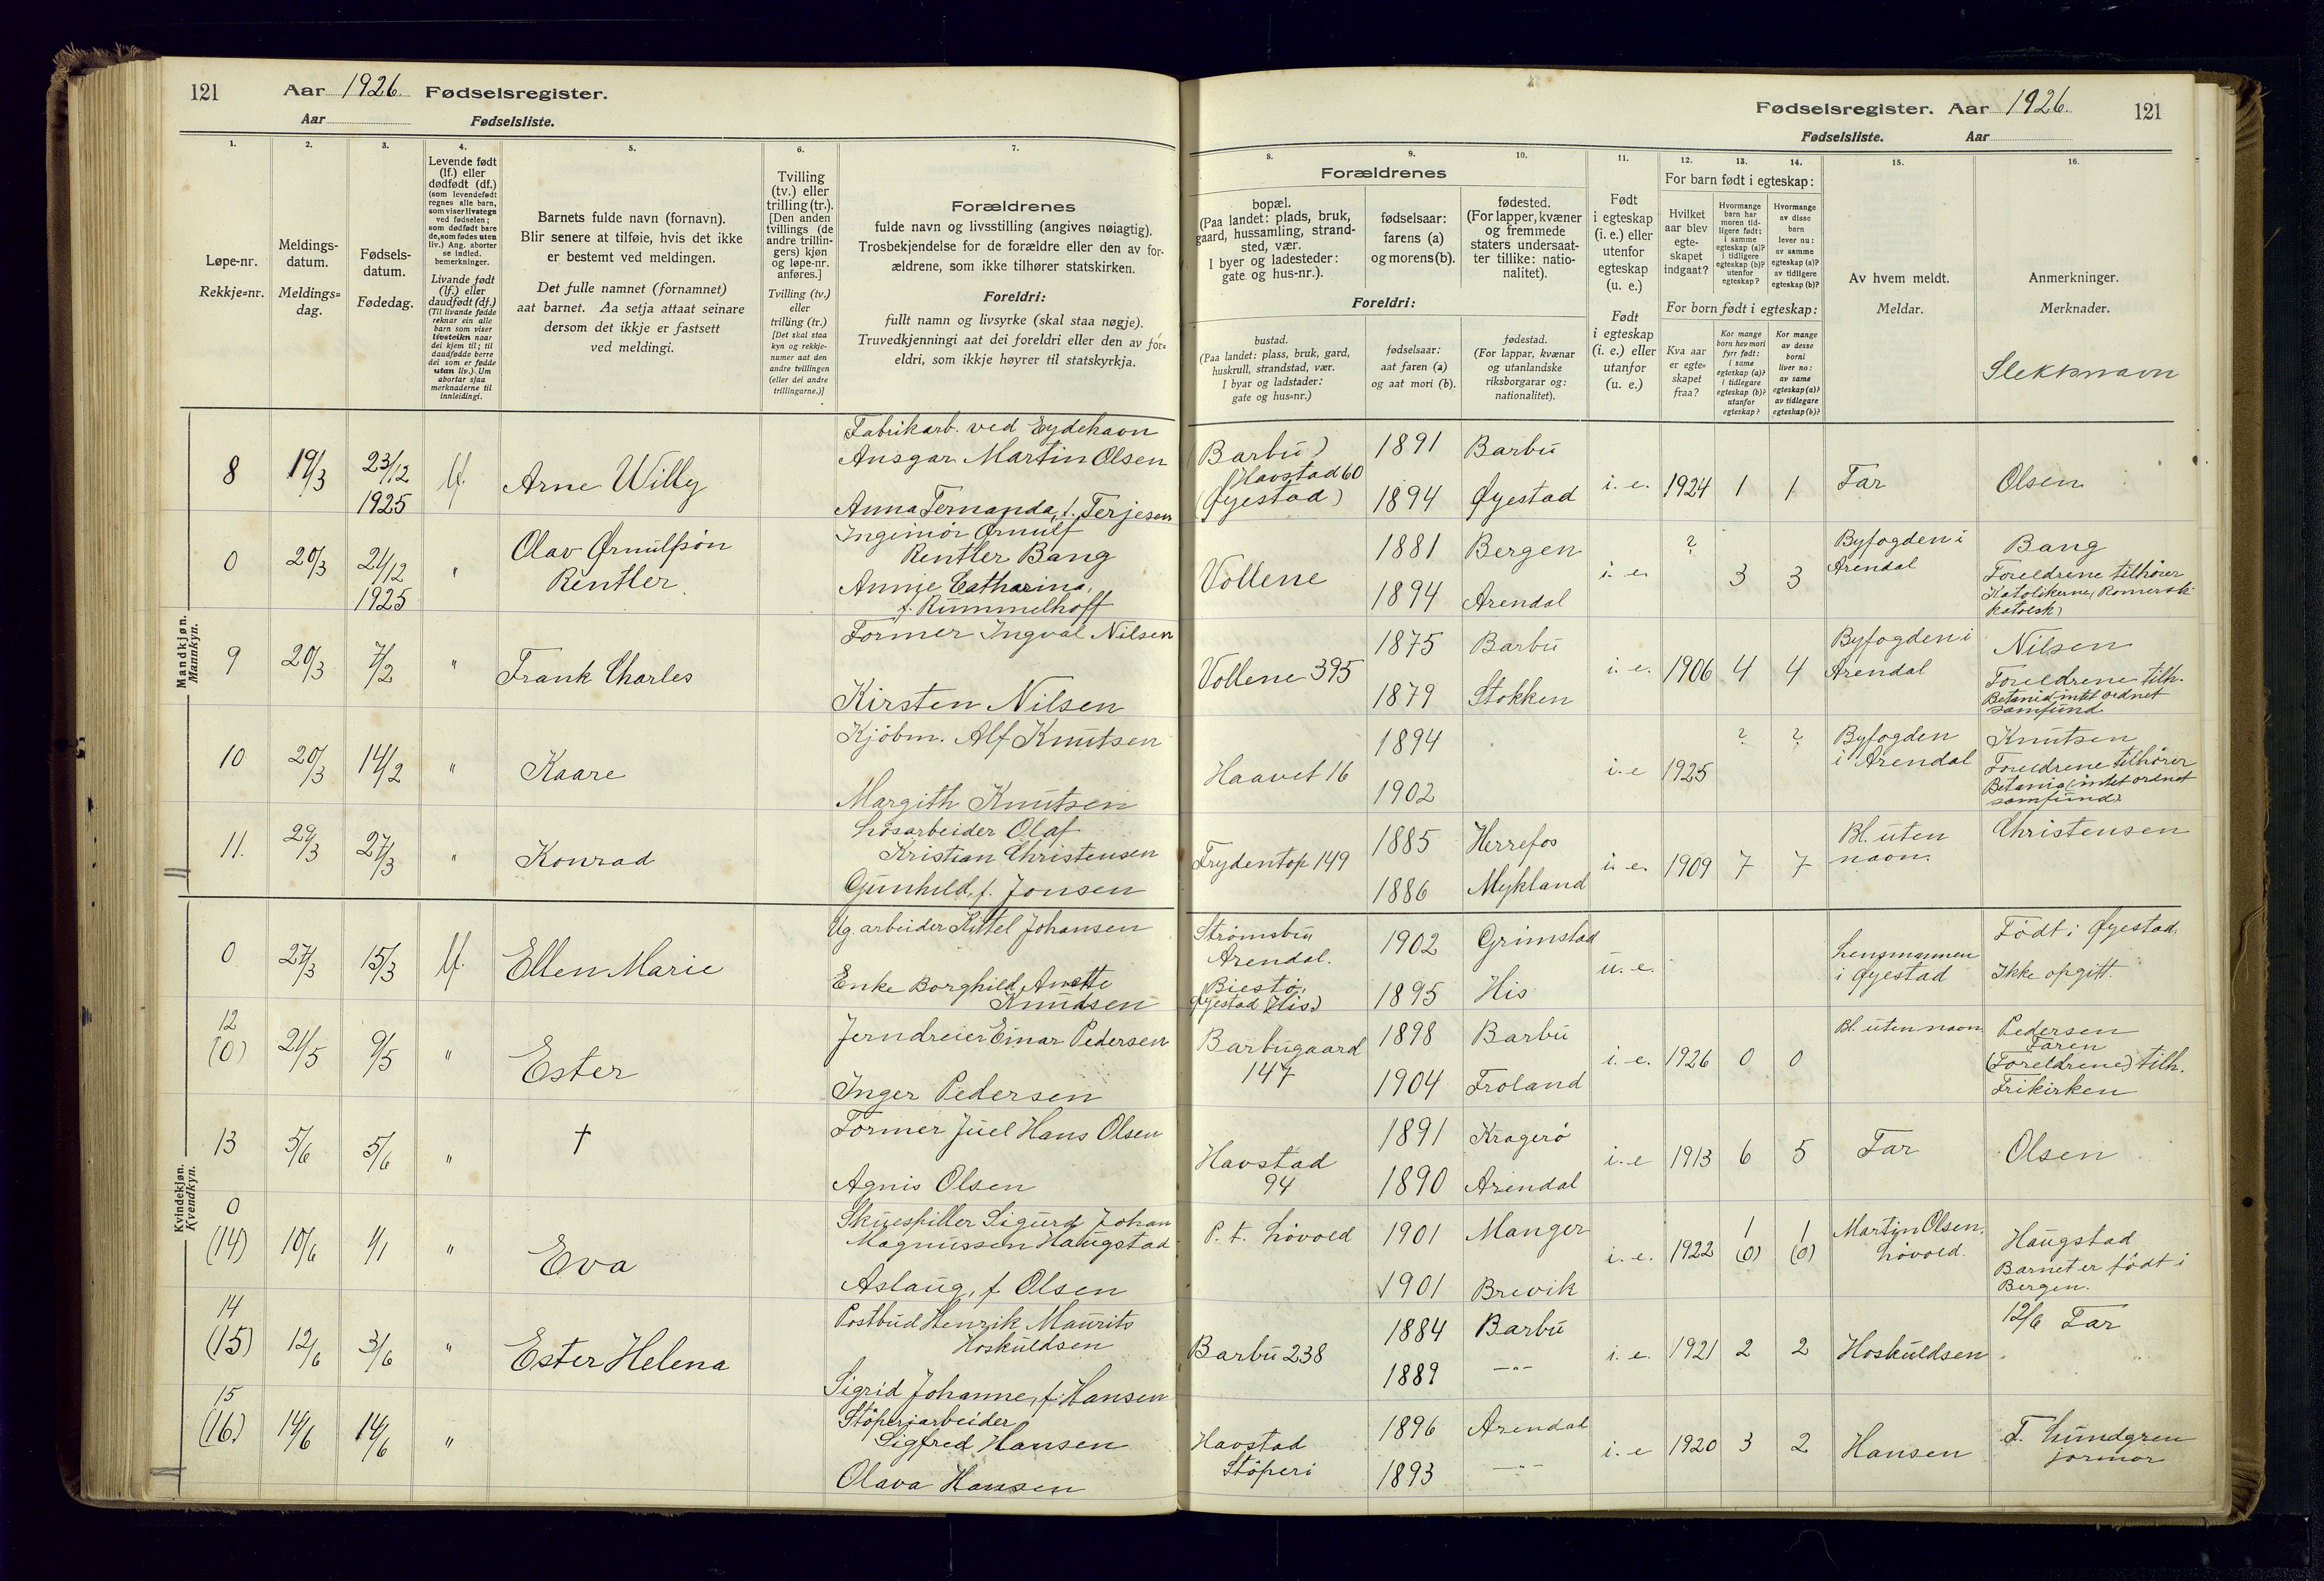 121 Aar 1926. Fødselsregister.
Aar Fødselsliste.
1. 2. 3. 4. 5. 6. 7.
Løpe-nr.
Rekkje=nr.
Meldings-
datum.
Meldings=
dag.
Fødsels-
datum.
Fødedag.
Levende født
(lf.) eller
dødfødt (df.)
(som levendefødt
regnes alle barn,
som viser livstegn
ved fødselen;
som dødfødt bare
de, som fødes uten
liv.) Ang. aborter
se indled.
bemerkninger.
Livande født
(lf.) eller
daudfødt (df.)
(Til livande fødde
reknar ein alle
barn som viser
livsteikn naar
dei kjem til; til
daudfødde berre
dei som er fødde
utan liv.) Um
abortar sjaa
merknaderne til
innleidingi.
Barnets fulde navn (fornavn).
Blir senere at tilføie, hvis det ikke
er bestemt ved meldingen.
Det fulle namnet (fornamnet)
aat barnet. Aa setja attaat seinare
dersom det ikkje er fastsett
ved meldingi.
Tvilling
(tv.) eller
trilling (tr.).
[Den anden
tvillings (de
andre trillin-
gers) kjøn
og løpe-nr.
anføres.]
Tvilling (tv.)
eller
trilling (tr.)
[Det skal staa
kyn og rekkje-
numer aat den
andre tvillingen
(eller dei andre
trillingarne.)]
Forældrenes
fulde navn og livsstilling (angives nøiagtig).
Trosbekjendelse for de forældre eller den av for-
ældrene, som ikke tilhører statskirken.
Foreldri:
fullt namn og livsyrke (skal staa nøgje).
Truvedkjenningi aat dei foreldri eller den av for=
eldri, som ikkje høyrer til statskyrkja.
Mandkjøn.
Mannkyn.
8 19/3 23/12 1925 lf. Arne Willy
Fabrikarb. ved Eydehavn
Ansgar Martin Olsen
Anna Fernanda, f. Terjesen
0 20/3 21/12 1925 " Olav Ørnulfsön
Rentler.
Ingimör Ørnulf
Rentler Bang
Annie Catharina,
f. Rummelhoff
9 20/3 7/2 " Frank Charles
Former Ingval Nilsen
Kirsten Nilsen
10 20/3 14/2 " Kaare
Kjöbm. Alf Knutsen
Margith Knutsen
11. 29/3 27/3 " Konrad
Løsarbeider Olaf
Kristian Christensen
Gunhild, f. Jonsen
Kvindekjøn.
Kvendkyn.
0 27/3 15/3 lf. Ellen Marie
Ug. arbeider Kittel Johansen
Enke Borghild Anette
Knudsen
12
(0) 21/5 9/5 " Ester
Jerndreier Einar Pedersen
Inger Pedersen
13 5/6 5/6 " †
Former Juel Hans Olsen
Agnis Olsen
0
(14) 10/6 1/1 " Eva
Skuespiller Sigurd Johan
Magnussen Haugstad
Aslaug, f Olsen
14
(15) 12/6 3/6 " Ester Helena
Postbud Henrik Maurits
Hoskuldsen
Sigrid Johanne, f. Hansen
15
(16.) 14/6 14/6 "
Stöperiarbeider
Sigfred Hansen
Olava Hansen
Fødselsregister. Aar 1926. 121
Fødselsliste. Aar
8. 9. 10. 11. 12. 13. 14. 15. 16.
Forældrenes
bopæl.
(Paa landet: plads, bruk,
gaard, hussamling, strand-
sted, vær.
I byer og ladesteder:
gate og hus-nr.).
fødselsaar:
farens (a)
og morens (b).
fødested.
(For lapper, kvæner
og fremmede
staters undersaat-
ter tillike: natio-
nalitet).
Foreldri:
bustad.
(Paa landet: plass, bruk, gard,
huskrull, strandstad, vær.
I byar og ladstader:
gate og hus=nr.)
fødselsaar:
aat faren (a)
og aat mori (b).
fødestad.
(For lappar, kvænar
og utanlandske
riksborgarar og:
nationalitet).
Født
i egteskap
(i. e.) eller
utenfor
egteskap
(u. e.)
Født
i egteskap
(i. e.) eller
utanfor
(u. e.)
For barn født i egteskap:
Hvilket
aar blev
egte-
skapet
indgaat?
Hvormange
barn har
moren tid-
ligere født:
i samme
egteskap (a)?
i tidligere
egteskap (b)?
utenfor
egteskap?
Hvormange
av disse
barn
lever nu:
av samme
egteskap (a)?
av tidligere
egteskap (b)?
For born født i egteskap:
Kva aar
er egte=
skapet
fraa?
Kor mange
born hev mori
fyrr født:
i same
egteskap (a)?
i tidlegare
egteskap (b)?
utanfor
egteskap?
Kor mange
av desse
borni
liver no:
av same
egteskap (a)?
av tidlegare
egteskap (b)?
Av hvem meldt.
Meldar.
Anmerkninger.
Merknader.
Slektsnavn
(Barbu)
Havstad 60
(Øyestad)
1891 Barbu
1894 Øyestad
i. e. 1924 1 1 Far Olsen
Vollene
1881 Bergen
1894 Arendal
i. e. ? 3 3
Byfogden i
Arendal
Bang
Foreldrene tilhører
Katolikerne (Romersk
katolsk)
Vollene 395
1875 Barbu
1879 Stokken
i. e. 1906 4 4
Byfogden i
Arendal
Nilsen
Foreldrene tilh.
Betania intet ordnet
samfund
Haavet 16
1894
1902
i. e 1925 ? ?
Byfogden
i Arendal
Knutsen
Foreldrene tilhører
Betania (intet ordnet
samfund)
Frydentop 149
1885 Herrefos
1886 Mykland
i. e. 1909 7 7
Bl. uten
navn.
Christensen
Strømsbu
Arendal.
Biestø,
Øyestad (His)
1902 Grimstad
1895 His
u. e.
Lensmannen
i Øyestad
Födt i Øyestad.
Ikke opgitt.
Barbugaard
147
1898 Barbu
1904 Froland
i. e. 1926 0 0
Bl. uten navn
Pedersen
Faren
(Foreldrene) tilh.
Frikirken
Havstad
94
1891 Kragerö
1890 Arendal
i. e 1913 6 5 Far Olsen
P. t. Lövold
1901 Manger
1901 Brevik
i. e. 1922 1 (0) 1 (0)
Martin Olsen,
Lövold.
Haugstad
Barnet er födt i
Bergen.
Barbu 238
1884 Barbu
1889 —"—
i. e. 1921 2 2 Hoskuldsen
12/6 Far
Havstad
Støperi
1896 Arendal
1893 —"—
i. e 1920 3 2 Hansen
F. Lundgren
jormor